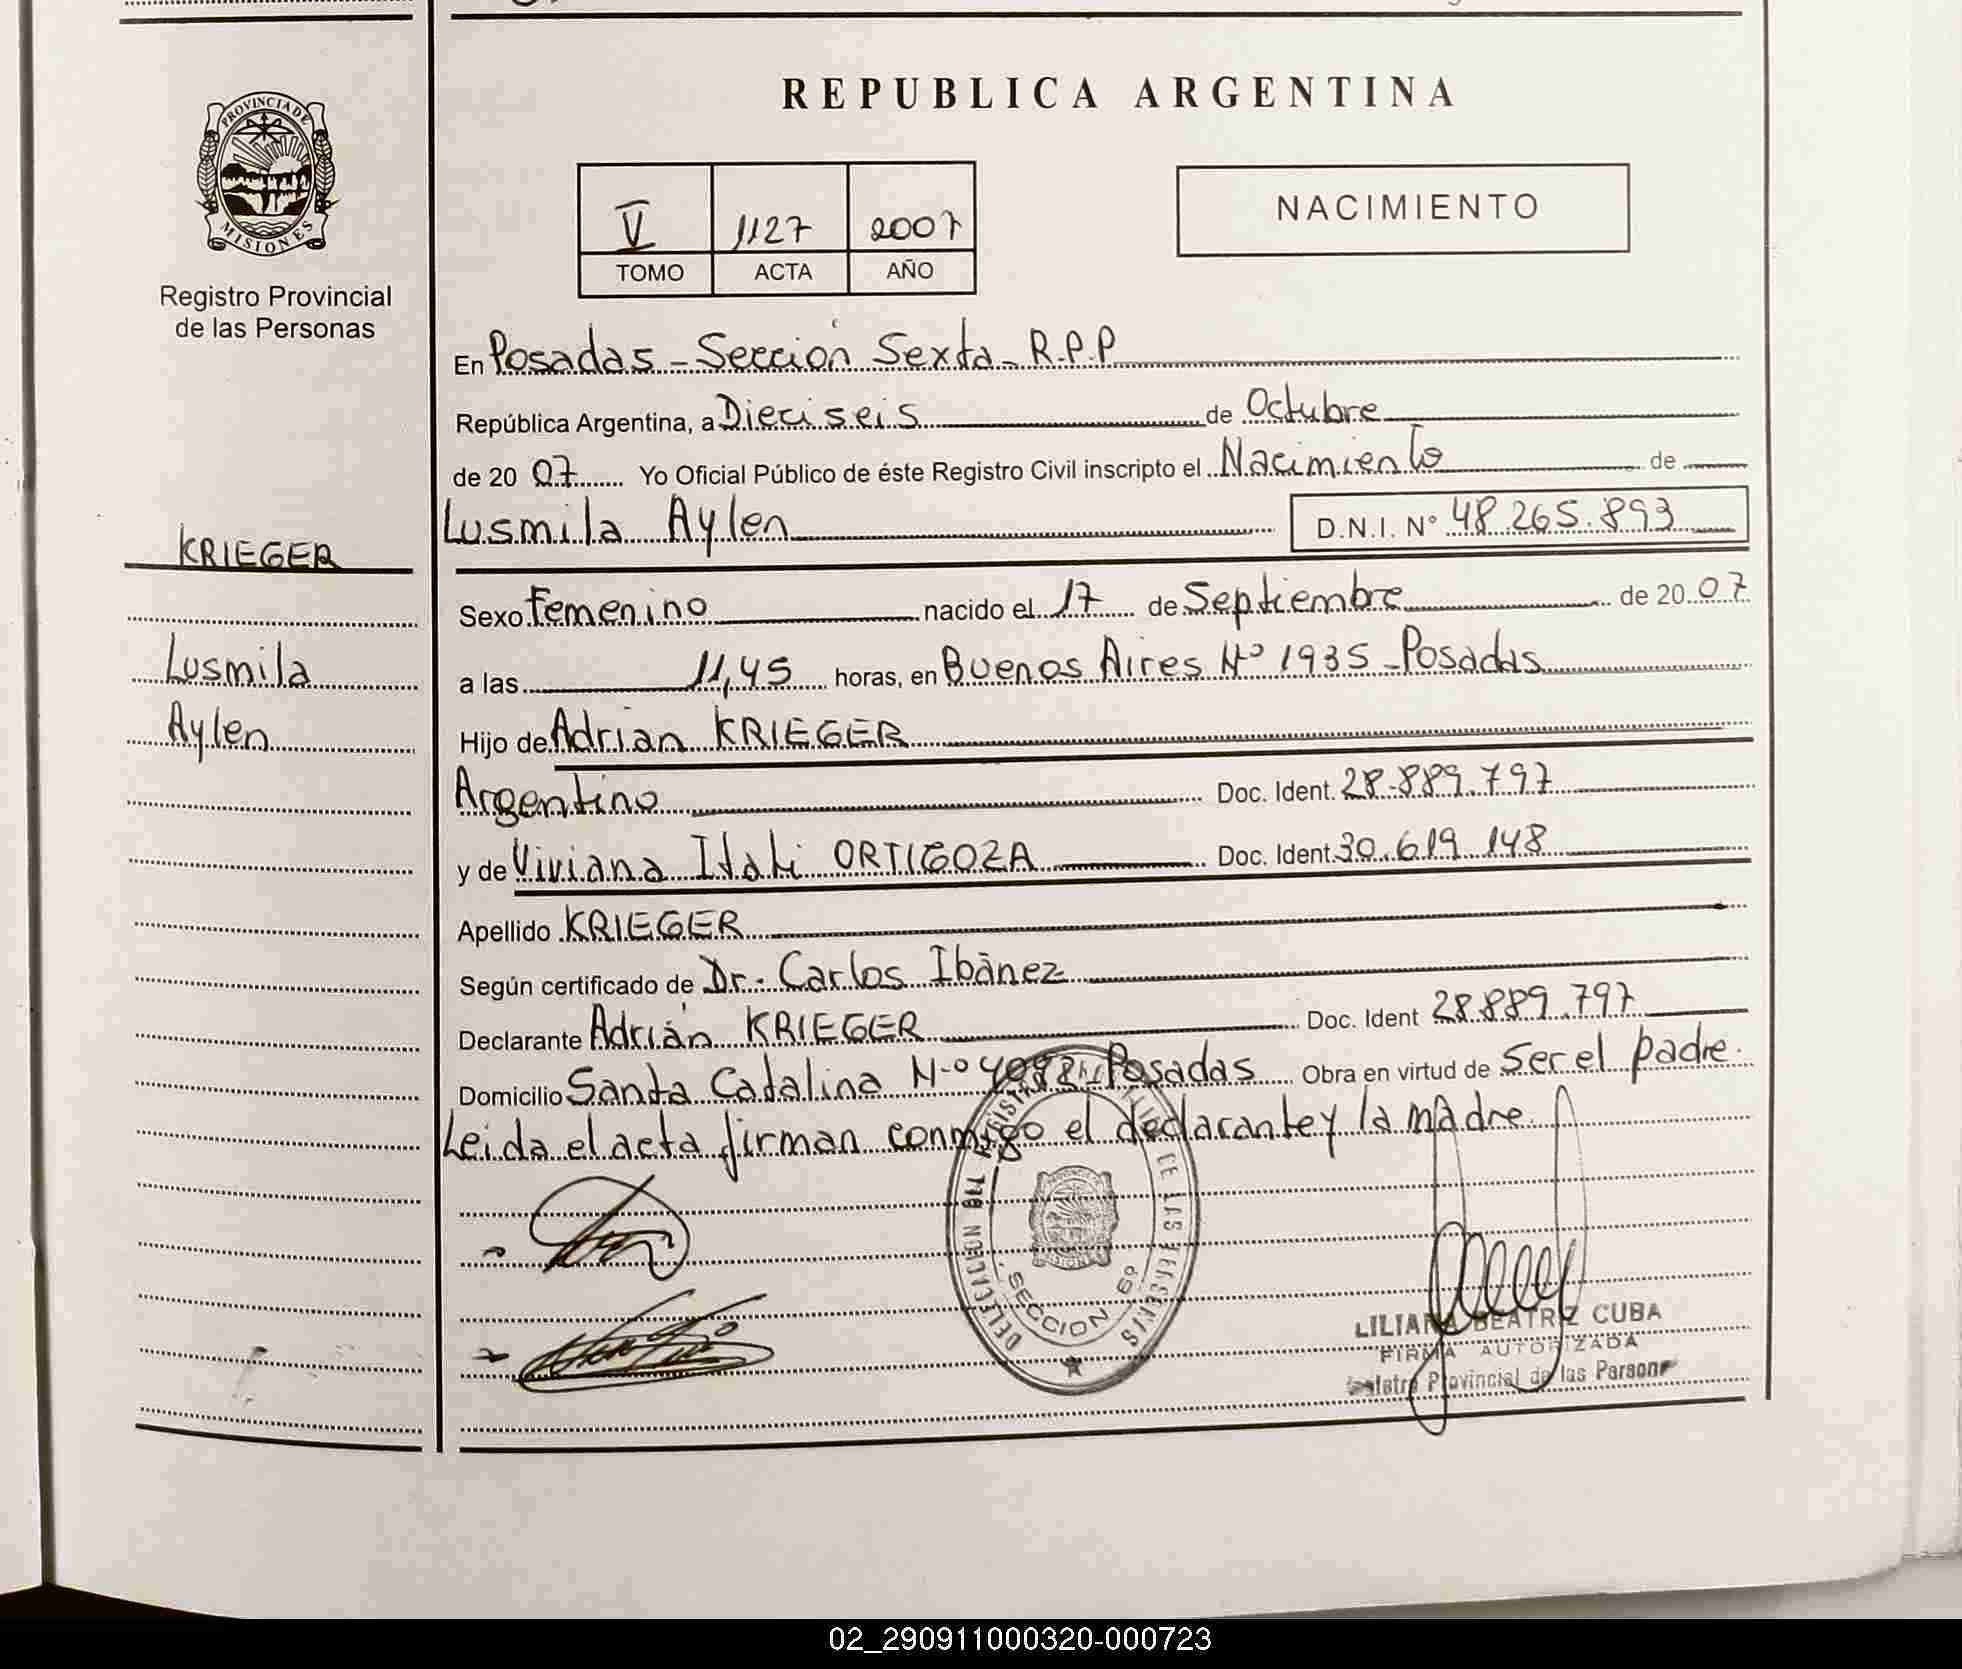 REPUBLICA ARGENTINA
PROVINCIA DE
MISIONES
Registro Provincial
de las Personas
V 1127 2007
TOMO ACTA AÑO
NACIMIENTO
En Posadas - Sección Sexta - R.P.P
República Argentina, a Dieciseis de Octubre
de 20 07 Yo Oficial Público de éste Registro Civil inscripto el Nacimiento de
Lusmila Aylen D.N.I. N° 48.265.893
KRIEGER
Lusmila
Aylen
Sexo Femenino nacido el 17 de Septiembre de 20 07
a las 11,45 horas, en Buenos Aires N° 1935 - Posadas
Hijo de Adrian KRIEGER
Argentino Doc. Ident. 28.889.797
y de Viviana Itati ORTIGOZA Doc. Ident. 30.619.148
Apellido KRIEGER
Según certificado de Dr. Carlos Ibánez
Declarante Adrián KRIEGER Doc. Ident 28.889.797
Domicilio Santa Catalina N° Posadas Obra en virtud de Ser el padre.
Leida el acta firman conmigo el declarante y la madre.
DE LAS PERSONAS
SECCION 6a
LILIANA BEATRIZ CUBA
FIRMA AUTORIZADA
Provincial de las Person
02_290911000320-000723